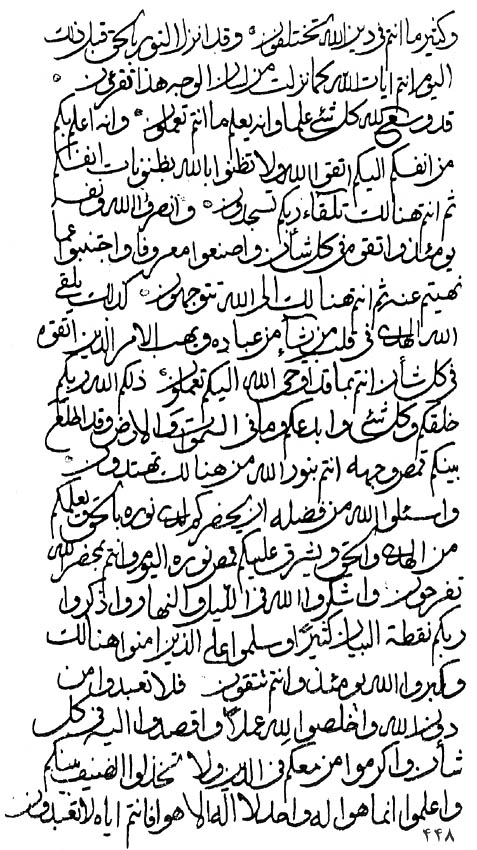 وكثير ما انتم في دين الله تختلفون وقد انزلنا النور بالحق قبل ذلك
اليوم انتم ايات الله كما نزلت من لسان الوجه هذا تقرئون
قد وسع الله كل شيء علما وانه يعلم ما انتم تعملون وانه اعلم بكم
من انفسكم اليكم اتقوا الله ولا تظنوا بالله بظنونات انفسكم
ثم انتم هنالك تلقاء ربكم تسجدون وانصروا الله ونفسه
يومئذ واتقوه في كل شأن واصنعوا معروفا واجتنبوا عما
نهيتم عنه ثم انتم هنالك الى الله تتوجهون كذلك يلقي
الله الهادي في قلب من يشاء من عباده ويهب الامر الذين اتقوه
في كل شأن انتم بما قد اوحى الله اليكم تعملون ذلكم الله ربكم
خلقكم وكل شيء وابدعكم وما في السموات والارض وقد اطلع
بينكم قمص وجهه انتم بنور الله من هنالك تهتدون
واسئلوا الله من فضله ان يحضركم لدى نوره بالحق يعلمكم
من الهدى والحق ويشرق عليكم قمص نوره اليوم وانتم بحضر الله
تفرحون واشكروا الله في الليل والنهار واذكروا
ربكم نقطة البيان كثيرا وسلموا على الذين امنوا هنالك
وكبروا الله يومئذ وانتم تتقون فلا تعبدوا من
دون الله واخلصوا لله عملا واقصدوا اليه في كل
شأن واكرموا من معكم في الدين ولا تخذلوا الضيف بينكم
واعلموا انما هو اله واحد لا اله الا هو افانتم اياه لا تعبدون
٤٤٨